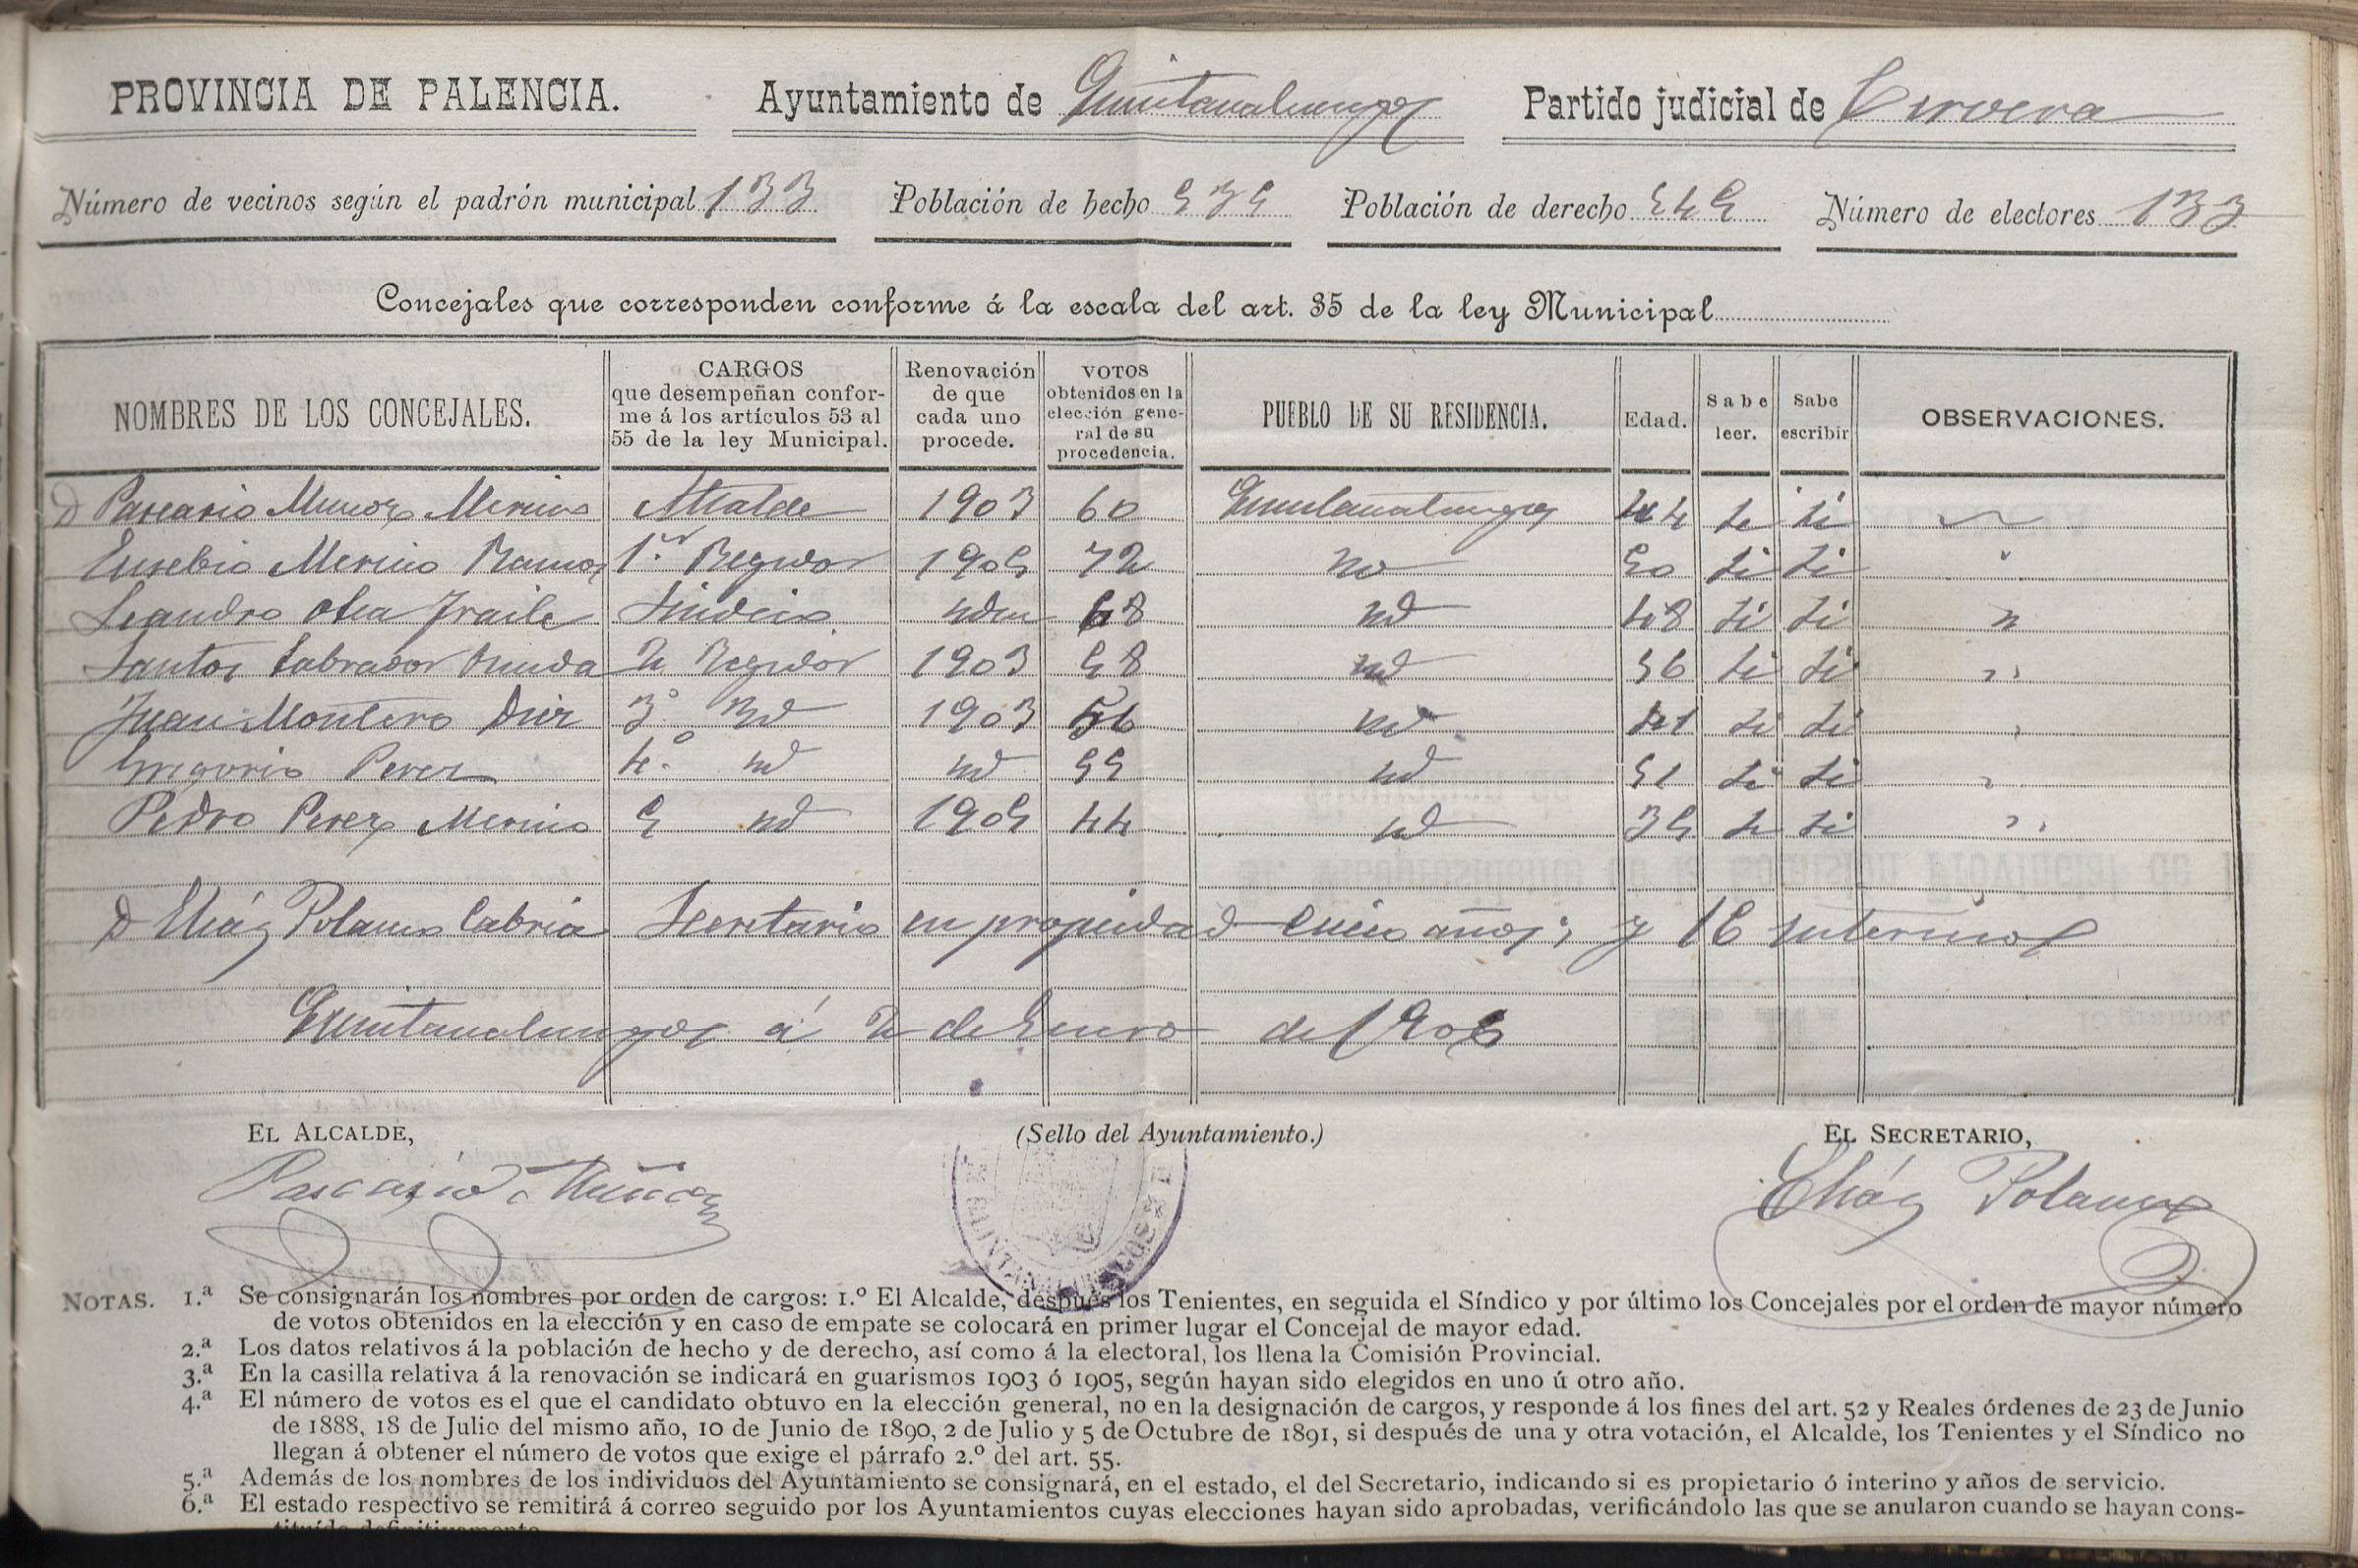 PROVINCIA DE PALENCIA. Ayuntamiento de Quintanaluengos Partido judicial de Cervera
Número de vecinos según el padrón municipal 133 Población de hecho 535 Población de derecho 545 Número de electores 133
Concejales que corresponden conforme á la escala del art. 35 de la ley Municipal
NOMBRES DE LOS CONCEJALES. CARGOS que desempeñan conforme á los artículos 53 al 55 de la ley Municipal. Renovación de que cada uno procede. VOTOS obtenidos en la elección general de su procedencia. PUEBLO DE SU RESIDENCIA. Edad. Sabe leer. Sabe escribir OBSERVACIONES.
D Pascasio Munoz Merino Alcalde 1903 60 Quintanaluengos 44 si si
Eusebio Merino Ramos 1.er Regidor 1905 72 50 si si "
Leandro Olea Fraile Sindico idem 68 id 48 si si "
Santos Labrador 2 Regidor 1903 58 id 56 si si "
Juan Montero Diez 3.º id 1903 56 id 41 si si "
Gregorio Perez 4.º id id 55 id 51 si si "
Pedro Perez Merino 5 id 1905 44 id 35 si si "
D Eliás Polanco Cabria Secretario en propiedad cinco años; y 16 interino
Quintanaluengos á 2 de Enero de 1906
EL ALCALDE, (Sello del Ayuntamiento.) EL SECRETARIO,
Pascasio Muñoz Eliás Polanco
NOTAS. 1.ª Se consignarán los nombres por orden de cargos: 1.º El Alcalde, después los Tenientes, en seguida el Síndico y por último los Concejales por el orden de mayor número
de votos obtenidos en la elección y en caso de empate se colocará en primer lugar el Concejal de mayor edad.
2.ª Los datos relativos á la población de hecho y de derecho, así como á la electoral, los llena la Comisión Provincial.
3.ª En la casilla relativa á la renovación se indicará en guarismos 1903 ó 1905, según hayan sido elegidos en uno ú otro año.
4.ª El número de votos es el que el candidato obtuvo en la elección general, no en la designación de cargos, y responde á los fines del art. 52 y Reales órdenes de 23 de Junio
de 1888, 18 de Julio del mismo año, 10 de Junio de 1890, 2 de Julio y 5 de Octubre de 1891, si después de una y otra votación, el Alcalde, los Tenientes y el Síndico no
llegan á obtener el número de votos que exige el párrafo 2.º del art. 55.
5.ª Además de los nombres de los individuos del Ayuntamiento se consignará, en el estado, el del Secretario, indicando si es propietario ó interino y años de servicio.
6.ª El estado respectivo se remitirá á correo seguido por los Ayuntamientos cuyas elecciones hayan sido aprobadas, verificándolo las que se anularon cuando se hayan cons-
tituído definitivamente.